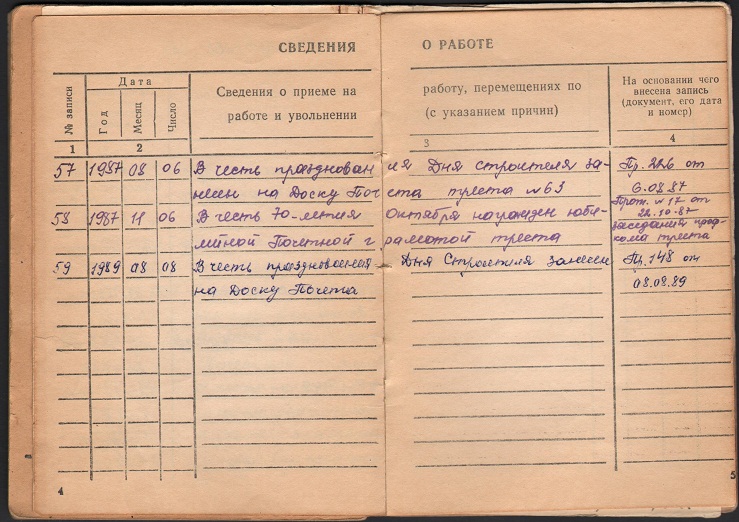 СВЕДЕНИЯ О РАБОТЕ
№ записи
Дата
Год
Месяц
Число
Сведения о приеме на работу, перемещениях по
работе и увольнении (с указанием причин)
На основании чего
внесена запись
(документ, его дата
и номер)
1 2 3 4
57 1987 08 06 В честь празднования Дня строителя за- Пр. 226 от
несен на Доску Почета треста №63 6.08.87
58 1987 11 06 В честь 70-летия Октября награжден юби- Прот. №17 от
22.10-87
лейной Почетной грамотой треста заседания проф-
кома треста
59 1989 08 08 В честь празднования Дня Строителя занесен Пр. 148 от
на Доску Почета 08.08.89
4 5